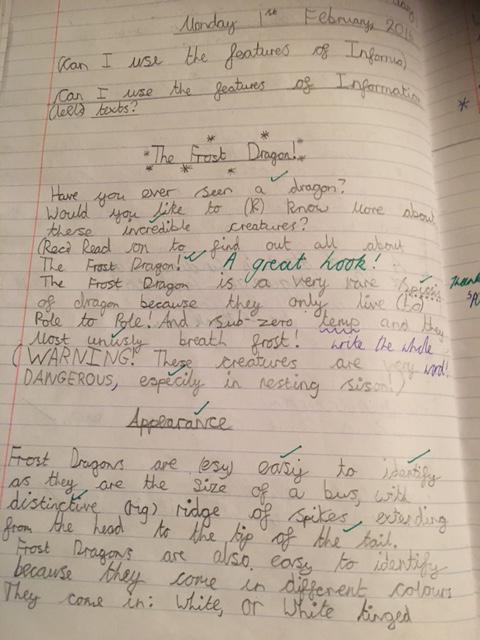 Monday 1st February, 2016
(Can I use the features of Informa)
Can I use the features of Information
(tells) texts?
The Frost Dragon!
Have you ever seen a dragon?
Would you like to (K) know more about
these incredible creatures?
(Rec) Read on to find out all about
The Frost Dragon! A great hook!
The Frost Dragon is a very rare spissis
of dragon because they only live (to)
Pole to Pole! And sub-zero temp and they
Most untisly breath frost! write the whole
(WARNING! These creatures are very word!
DANGEROUS, especily in nesting sison!)
Appearance
Frost Dragons are (esy) easy to identify
as they are the size of a bus, with
distinctive (rig) ridge of spikes extending
from the head to the tip of the tail.
Frost Dragons are also easy to identify
because they come in different colours
They come in: White, or White tinged